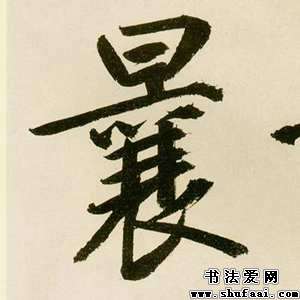 曩
书法爱网
www.shufaai.com